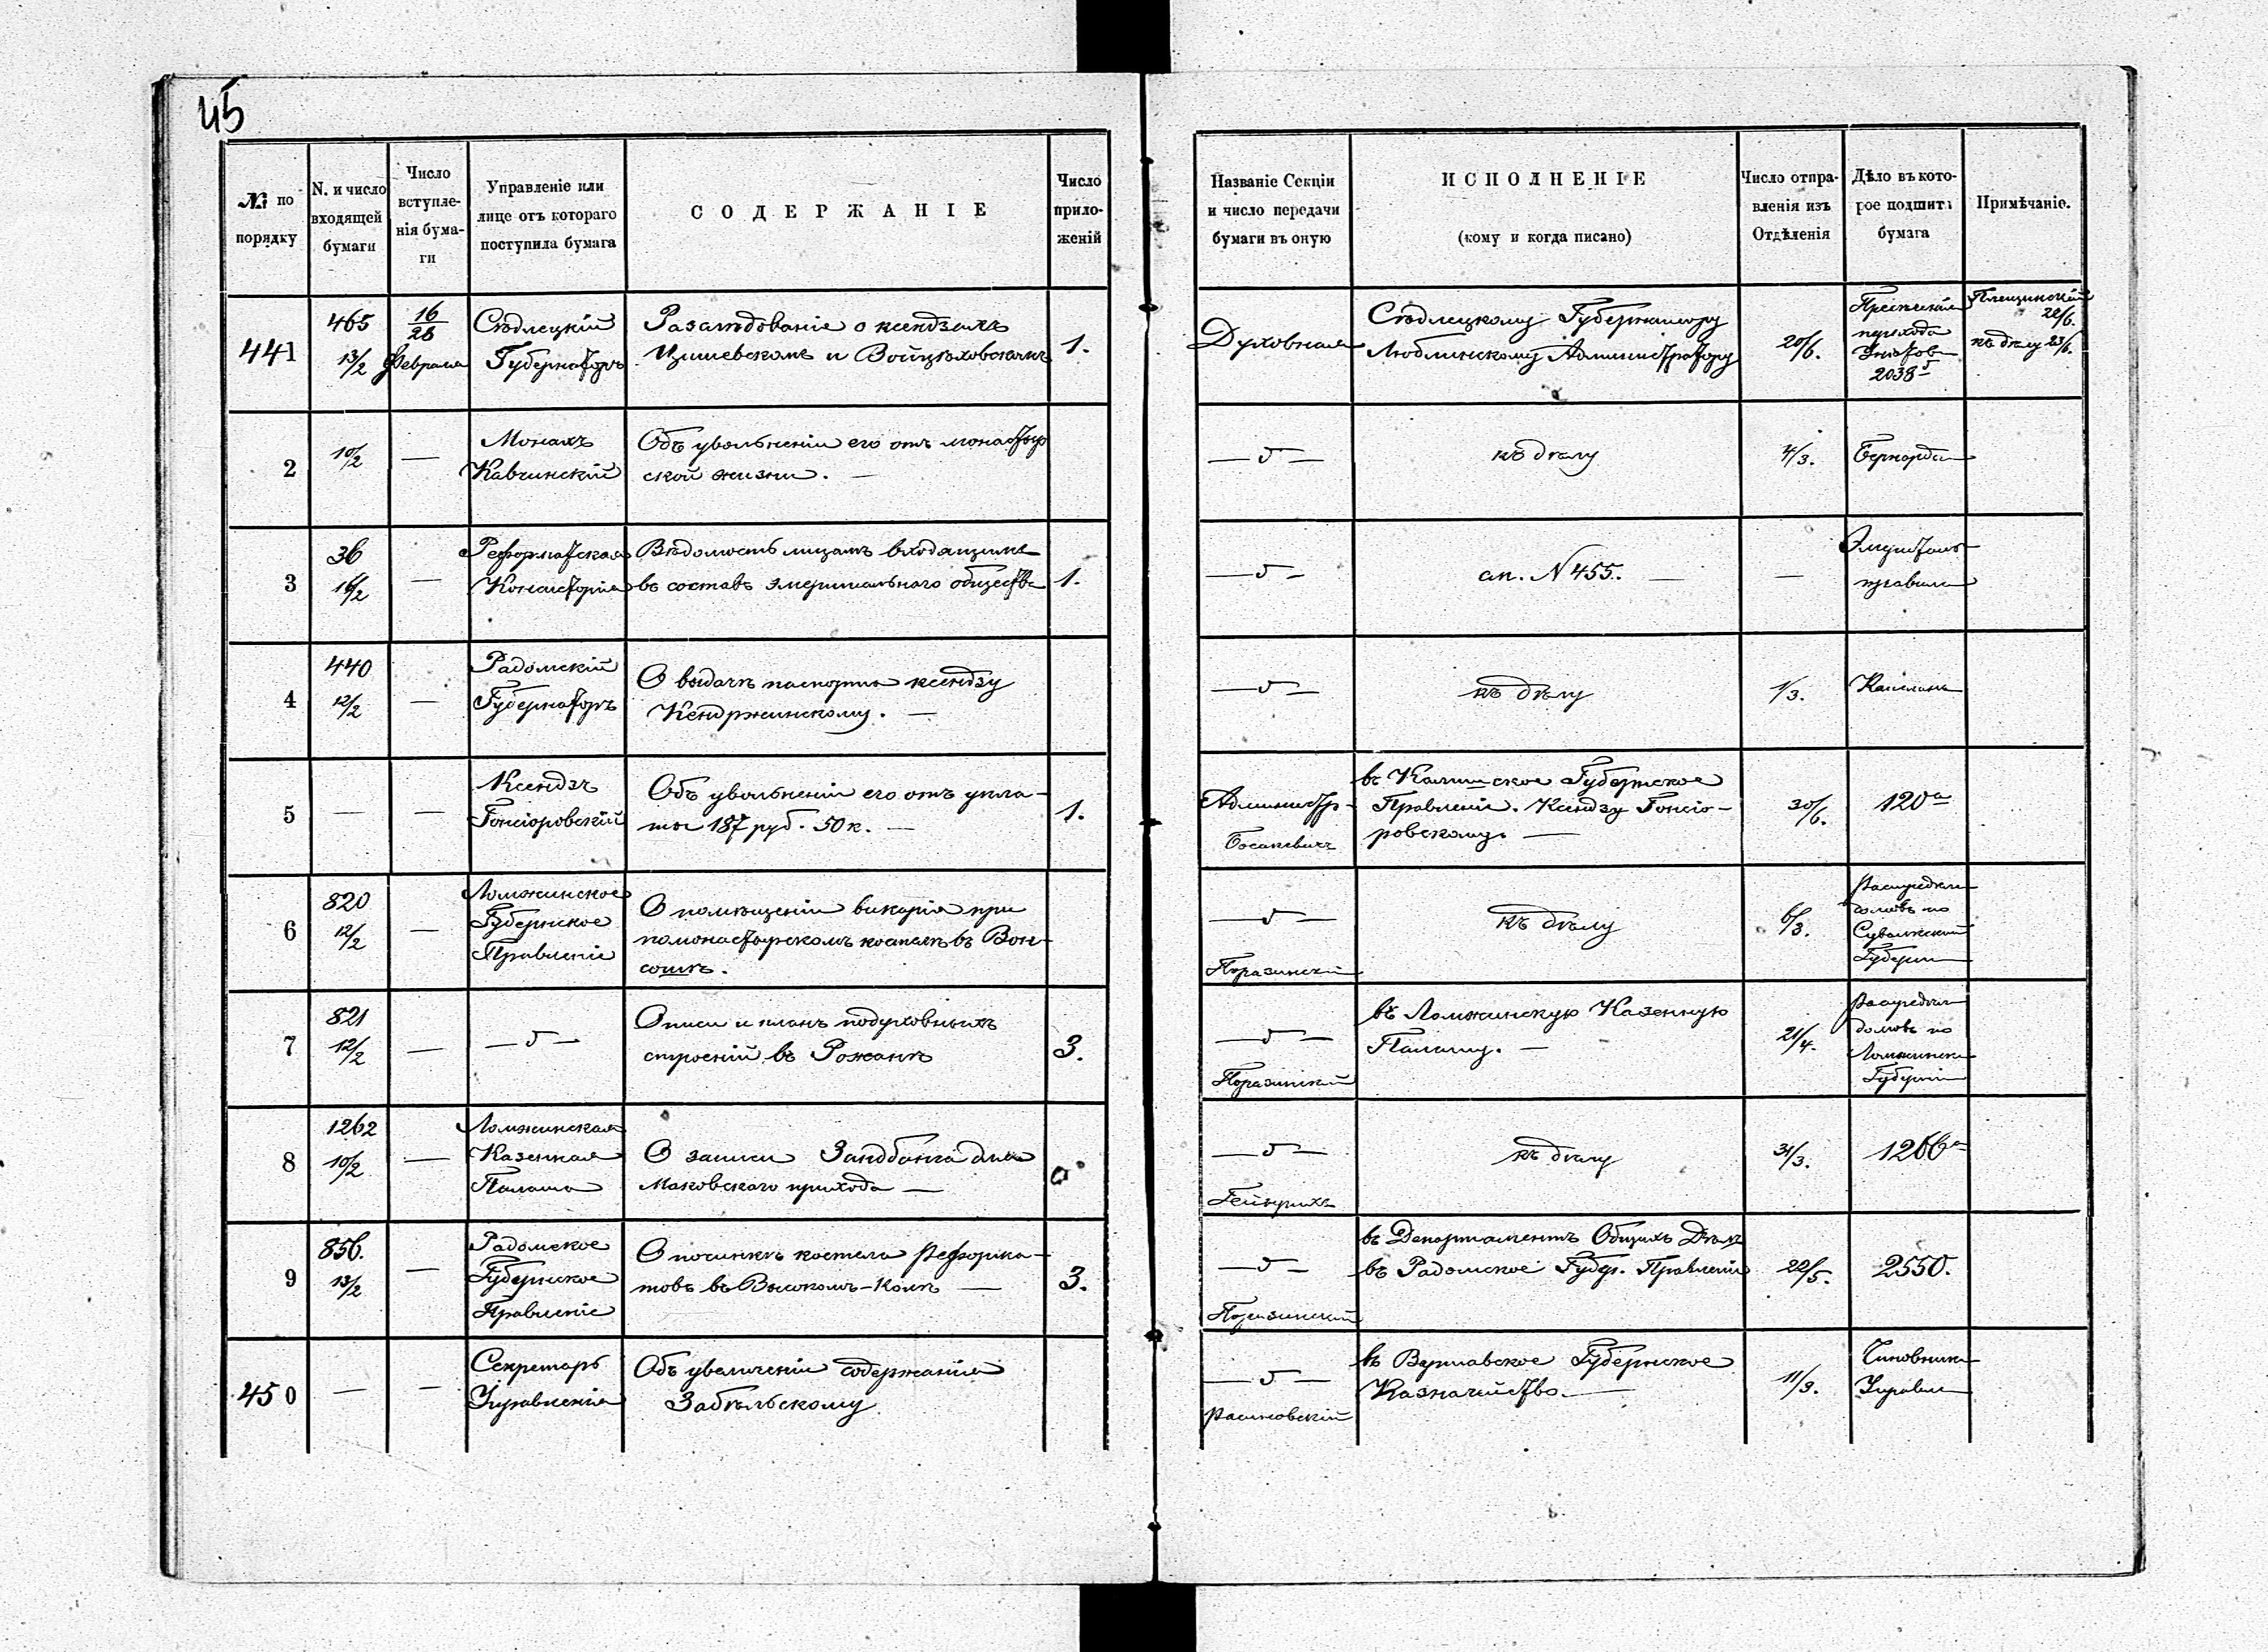 45
№ по порядку
N. и число входящей бумаги
Число вступле-
нія бума-
ги
Управленіе или
лице отъ котораго
поступила бумага
СОДЕРЖАНІЕ
Число
прило-
женій
Названіе Секціи
и число передачи
бумаги въ оную
ИСПОЛНЕНІЕ
(кому и когда писано)
Число отпра-
вленія изъ
Отдѣленія
Дѣло въ кото-
рое подшита
бумага
Примѣчаніе.
441
465
13/2
16/28
Февраля
Сѣдлецкій
Губернаторъ
Разслѣдованіе о ксендзахъ
Цишевскомъ и Войцѣховскомъ
1.
Духовная
Сѣдлецкому Губернатору
Люблинскому Администратору
20/6.
перехода
Уніатов
2038
22/6.
къ дѣлу 23/6.
2
10/2
—
Монахъ
Кавчинскій
Объ увольненіи его отъ монастыр
ской жизни. —
— 5 —
къ дѣлу
4/3.
Бернорди
3
36
16/2
—
Реформатская
Консисторія
Вѣдомость лицамъ входящимъ
въ составъ эмеритальнаго общества
1.
— 5 —
ст. N 455. —
—
правила
4
440
12/2
—
Радомскій
Губернаторъ
О выдачѣ паспорта ксендзу
Кендржинскому. —
— 5 —
къ дѣлу
1/3.
5
—
—
Ксендзъ
Гонсіоровскій
Объ увольненіи его отъ упла-
ты 187 руб. 50 к. —
1.
Администр-
въ Калишское Губернское
Правленіе. Ксендзу Гонсіо-
ровскому. —
30/6.
120а
6
820
12/2
—
Ломжинское
Губернское
Правленіе
О помѣщеніи викарія при
помонастырскомъ костелѣ въ Вон-
сошѣ.
— 5 —
Поразинскій
къ дѣлу
6/3.
домовъ по
Сувалкской
Губерніи
7
821
12/2
—
— 5 —
Описи и планъ подуховныхъ
строеній въ Рожанѣ
3.
— 5 —
Поразинскій
въ Ломжинскую Казенную
Палату. —
21/4.
домовъ по
Ломжинск
Губерніи
8
1262
10/2
—
Ломжинская
Казенная
Палата
О записи Зандбанга для
Маковскаго прихода —
— 5 —
Гейнрихъ
къ дѣлу
31/3.
1266а
9
856.
13/2
—
Радомское
Губернское
Правленіе
О починкѣ костела реформа-
товъ въ Высокомъ-Колѣ —
3.
— 5 —
Поразинскій
въ Департаментъ Общихъ Дѣлъ
въ Радомское Губер. Правленіе
22/5.
2550.
450
—
—
Секретарь
Управленія
Объ увеличеніи содержанія
Забѣльскому
— 5 —
въ Варшавское Губернское
Казначейство. —
11/3.
Чиновники
Управл